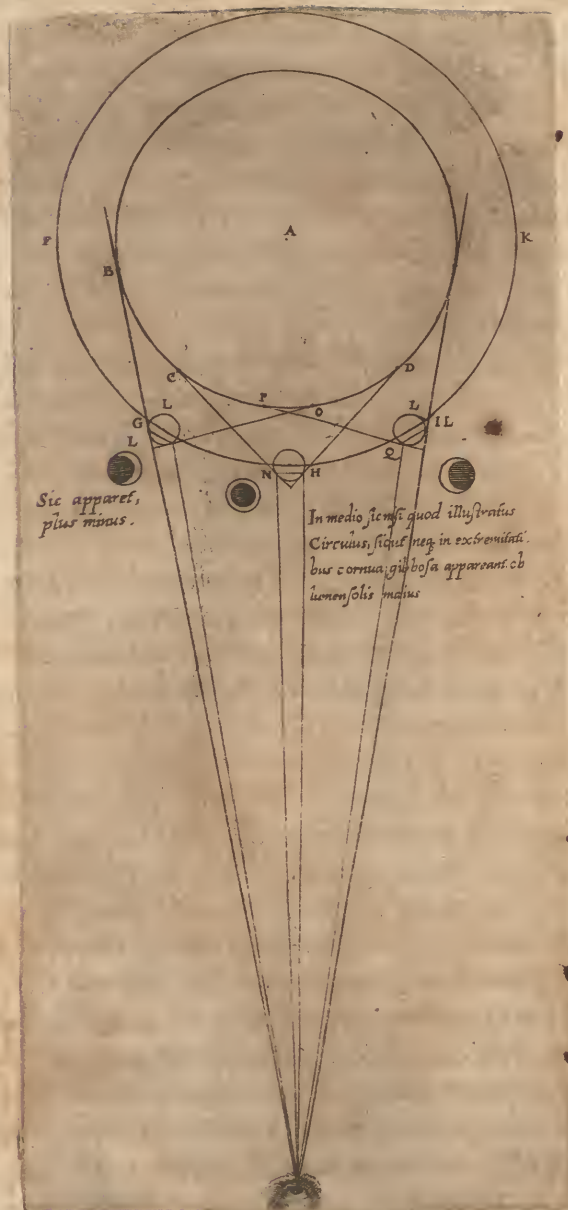 A
F
K
B
C
D
P
O
G
L
L
I L
L
Q
N
H
Sic apparet,
plus minus.
In medio sic nisi quod illustratus
Circulus, sicut neq in extremitati.
bus cornua; gibbosa appareant. ob
lumen solis maius